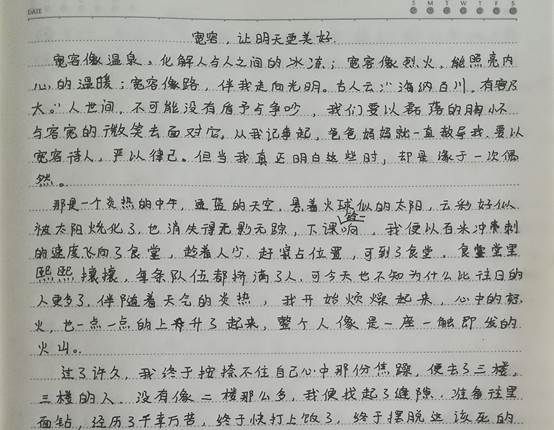 DATE
S M T W T F S
宽容，让明天更美好.
宽容像温泉，化解人与人之间的冰冻；宽容像烈火，能照亮内
心的温暖；宽容像路，伴我走向光明。古人云："海纳百川，有容乃
大."人世间，不可能没有盾予与争吵，我们要以磊落的胸怀
与容宽的微笑去面对它。从我记事起，爸爸妈妈就一直教导我，要以
宽容待人，严以律己。但当我真正明白这些时，却是缘于一次偶
然。
那是一个炎热的中午，湛蓝的天空，悬着火球似的太阳，云彩好似
被太阳烧化了，也消失得无影无踪，下课铃响，我便以百米冲刺
的速度飞向了食堂，趁着人少，赶紧占位置，可到了食堂，食堂里
熙熙攘攘，每条队伍都挤满了人，可今天也不知为什么比往日的
人更多了，伴随着天气的炎热，我开始烦燥起来，心中的怒
火，也一点一点的上升了起来，整个人像是一座一触即发的
火山。
过了许久，我终于按捺不住自己心中那份焦躁，便去了三楼，
三楼的人，没有像二楼那么多，我便找起了缝隙，准备往里
面钻，经历了千辛万苦，终于快打上饭了，终于摆脱这该死的